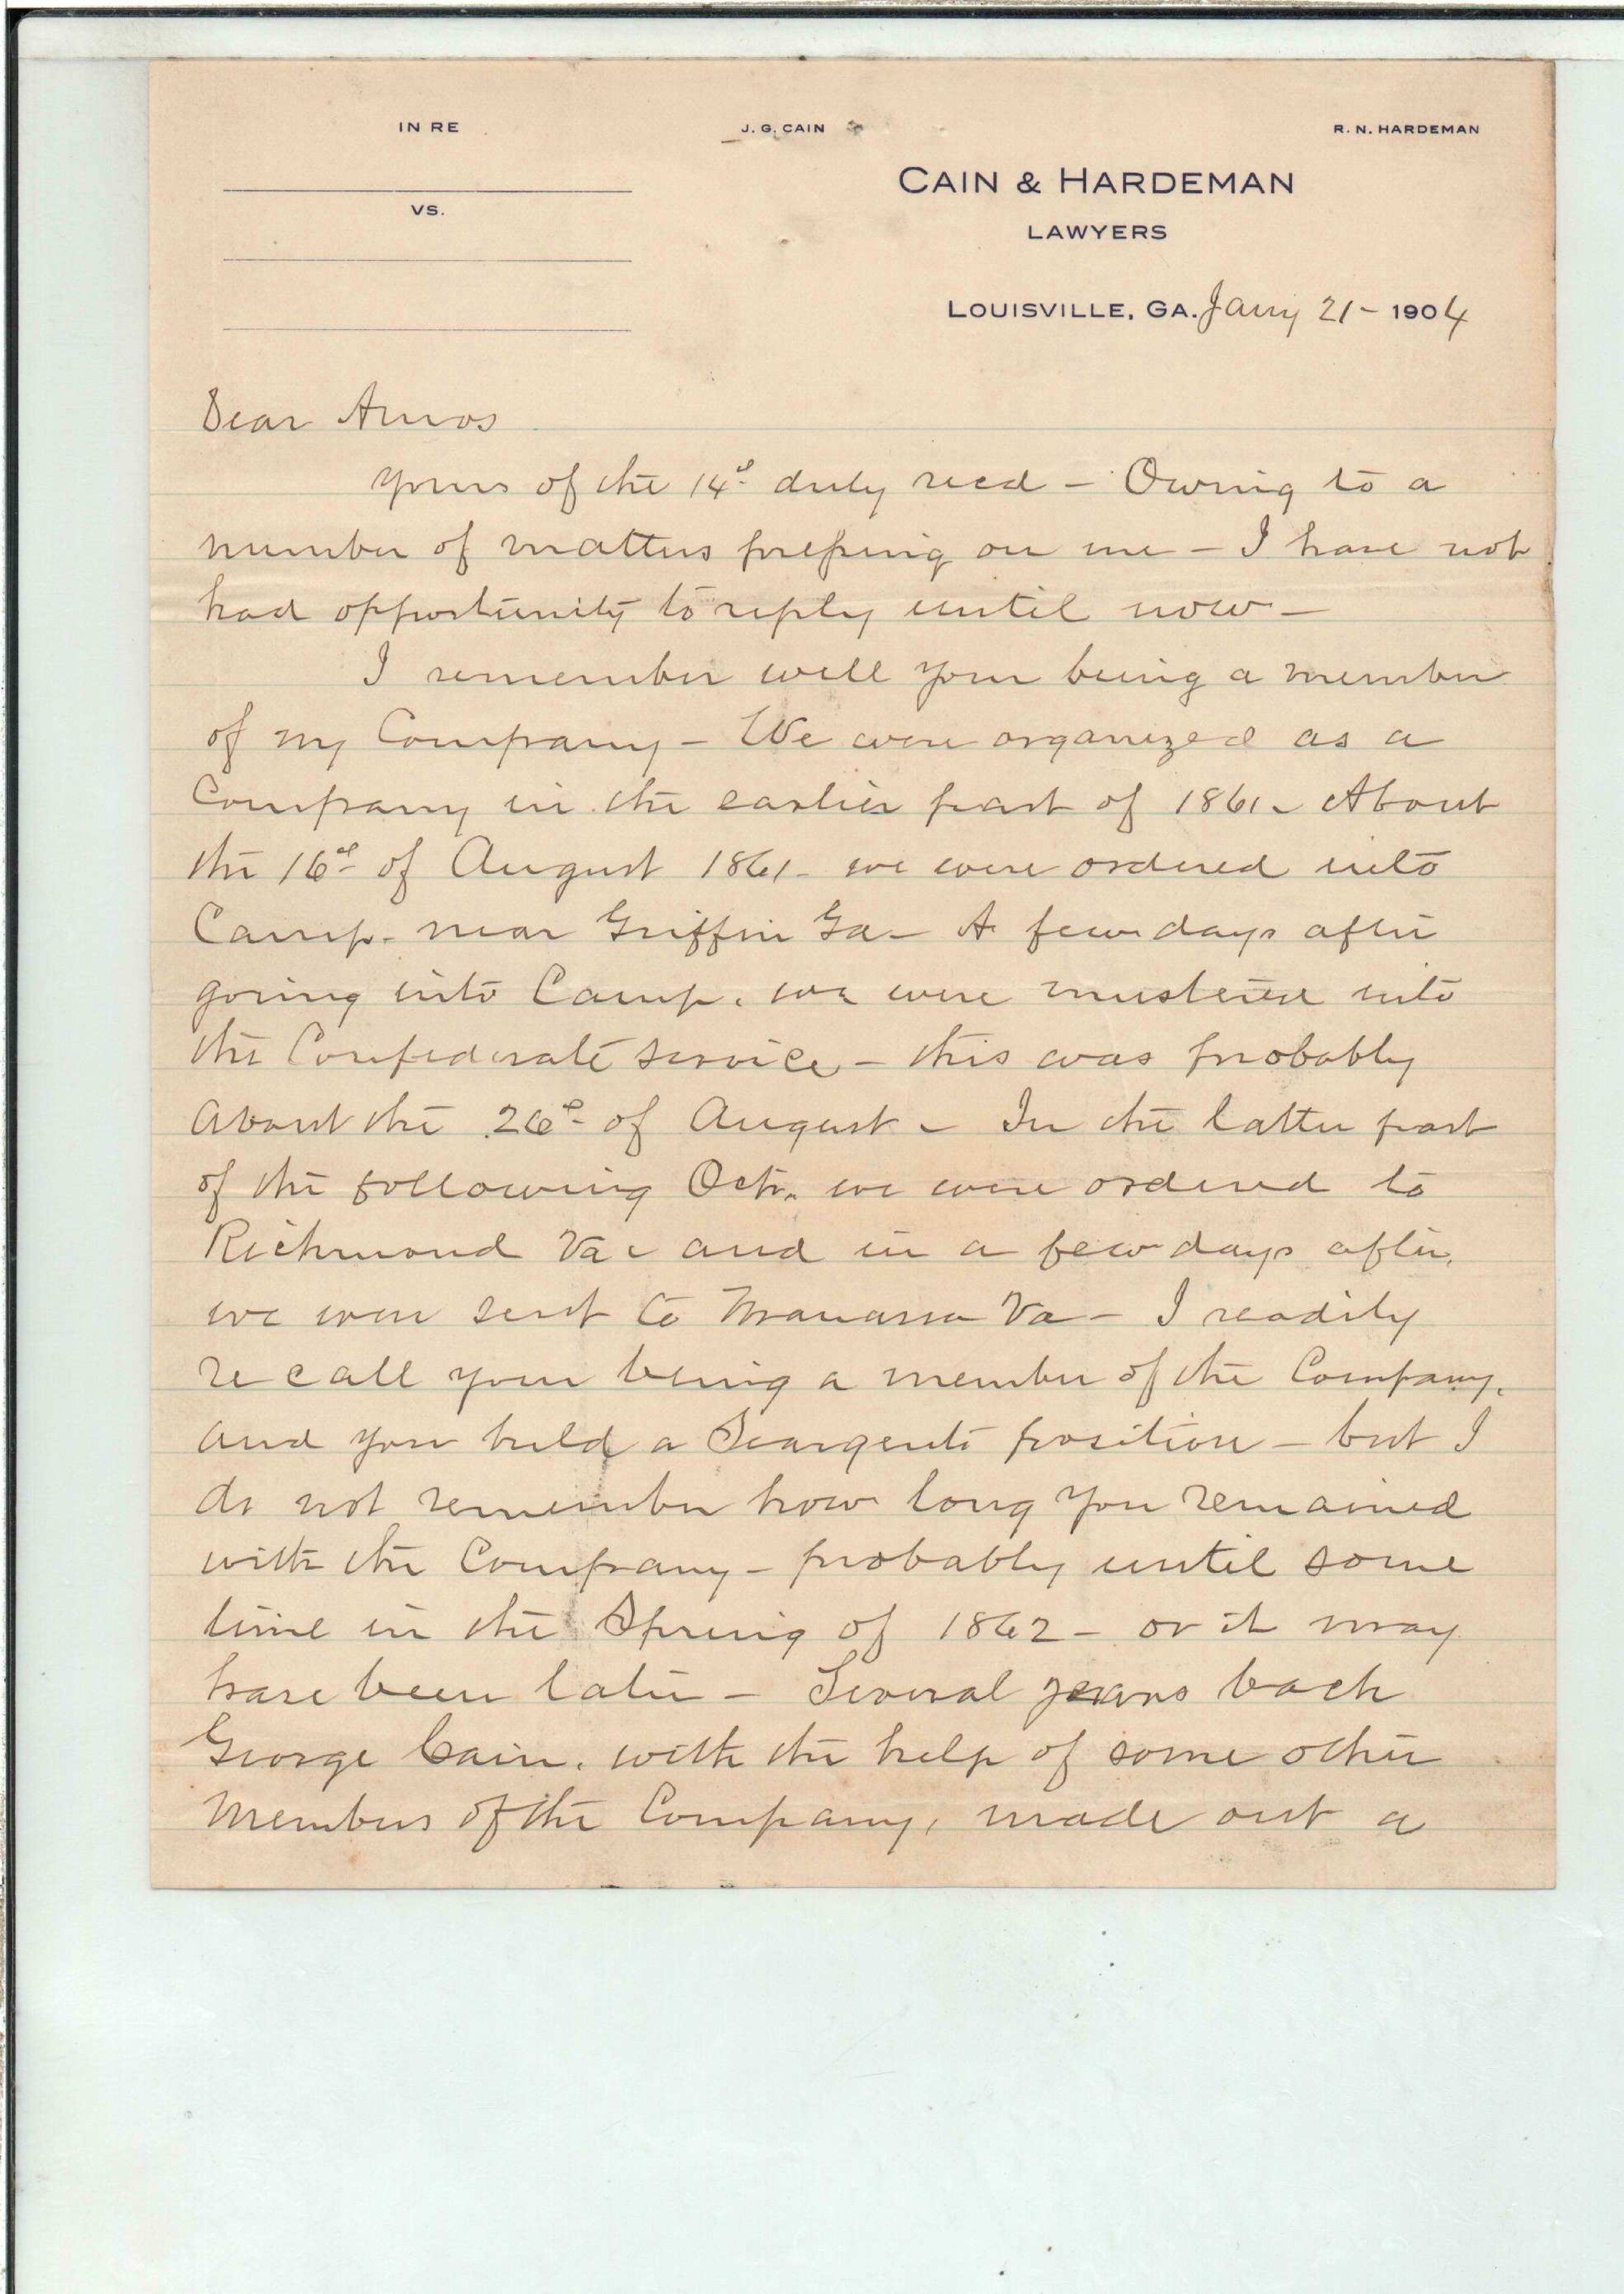 IN RE
J. G. CAIN
R. N. HARDEMAN
CAIN & HARDEMAN
VS.
LAWYERS
LOUISVILLE, GA. Jany 21 - 1904
Dear Amos
Yours of the 14th duly recd - Owing to a
number of matters pressing on me - I have not
had opportunity to reply until now -
I remember well your being a member
of my Company - We were organized as a
Company in the earlier part of 1861 - About
the 16th of August 1861 - we were ordered into
Camp - near Griffin Ga - A few days after
going into Camp. we were mustered into
the Confederate service - this was probably
about the 26th of August - In the latter part
of the following Octr. we were ordered to
Richmond Va - and in a few days after,
we were sent to Manassa Va - I readily
recall your being a member of the Company.
and you held a Seargents position - but I
do not remember how long you remained
with the Company - probably until some
time in the Spring of 1862 - or it may
have been later - Several years back
George Cain. with the help of some other
members of the Company, made out a